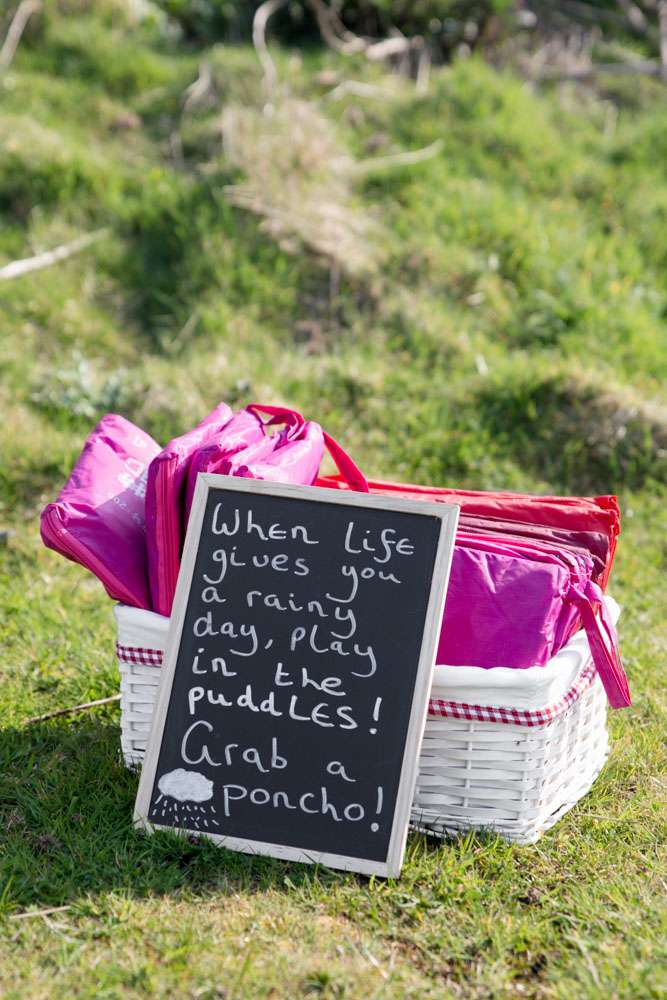 When Life
gives you
a rainy
day, play
in the
puddles!
Grab a
poncho!